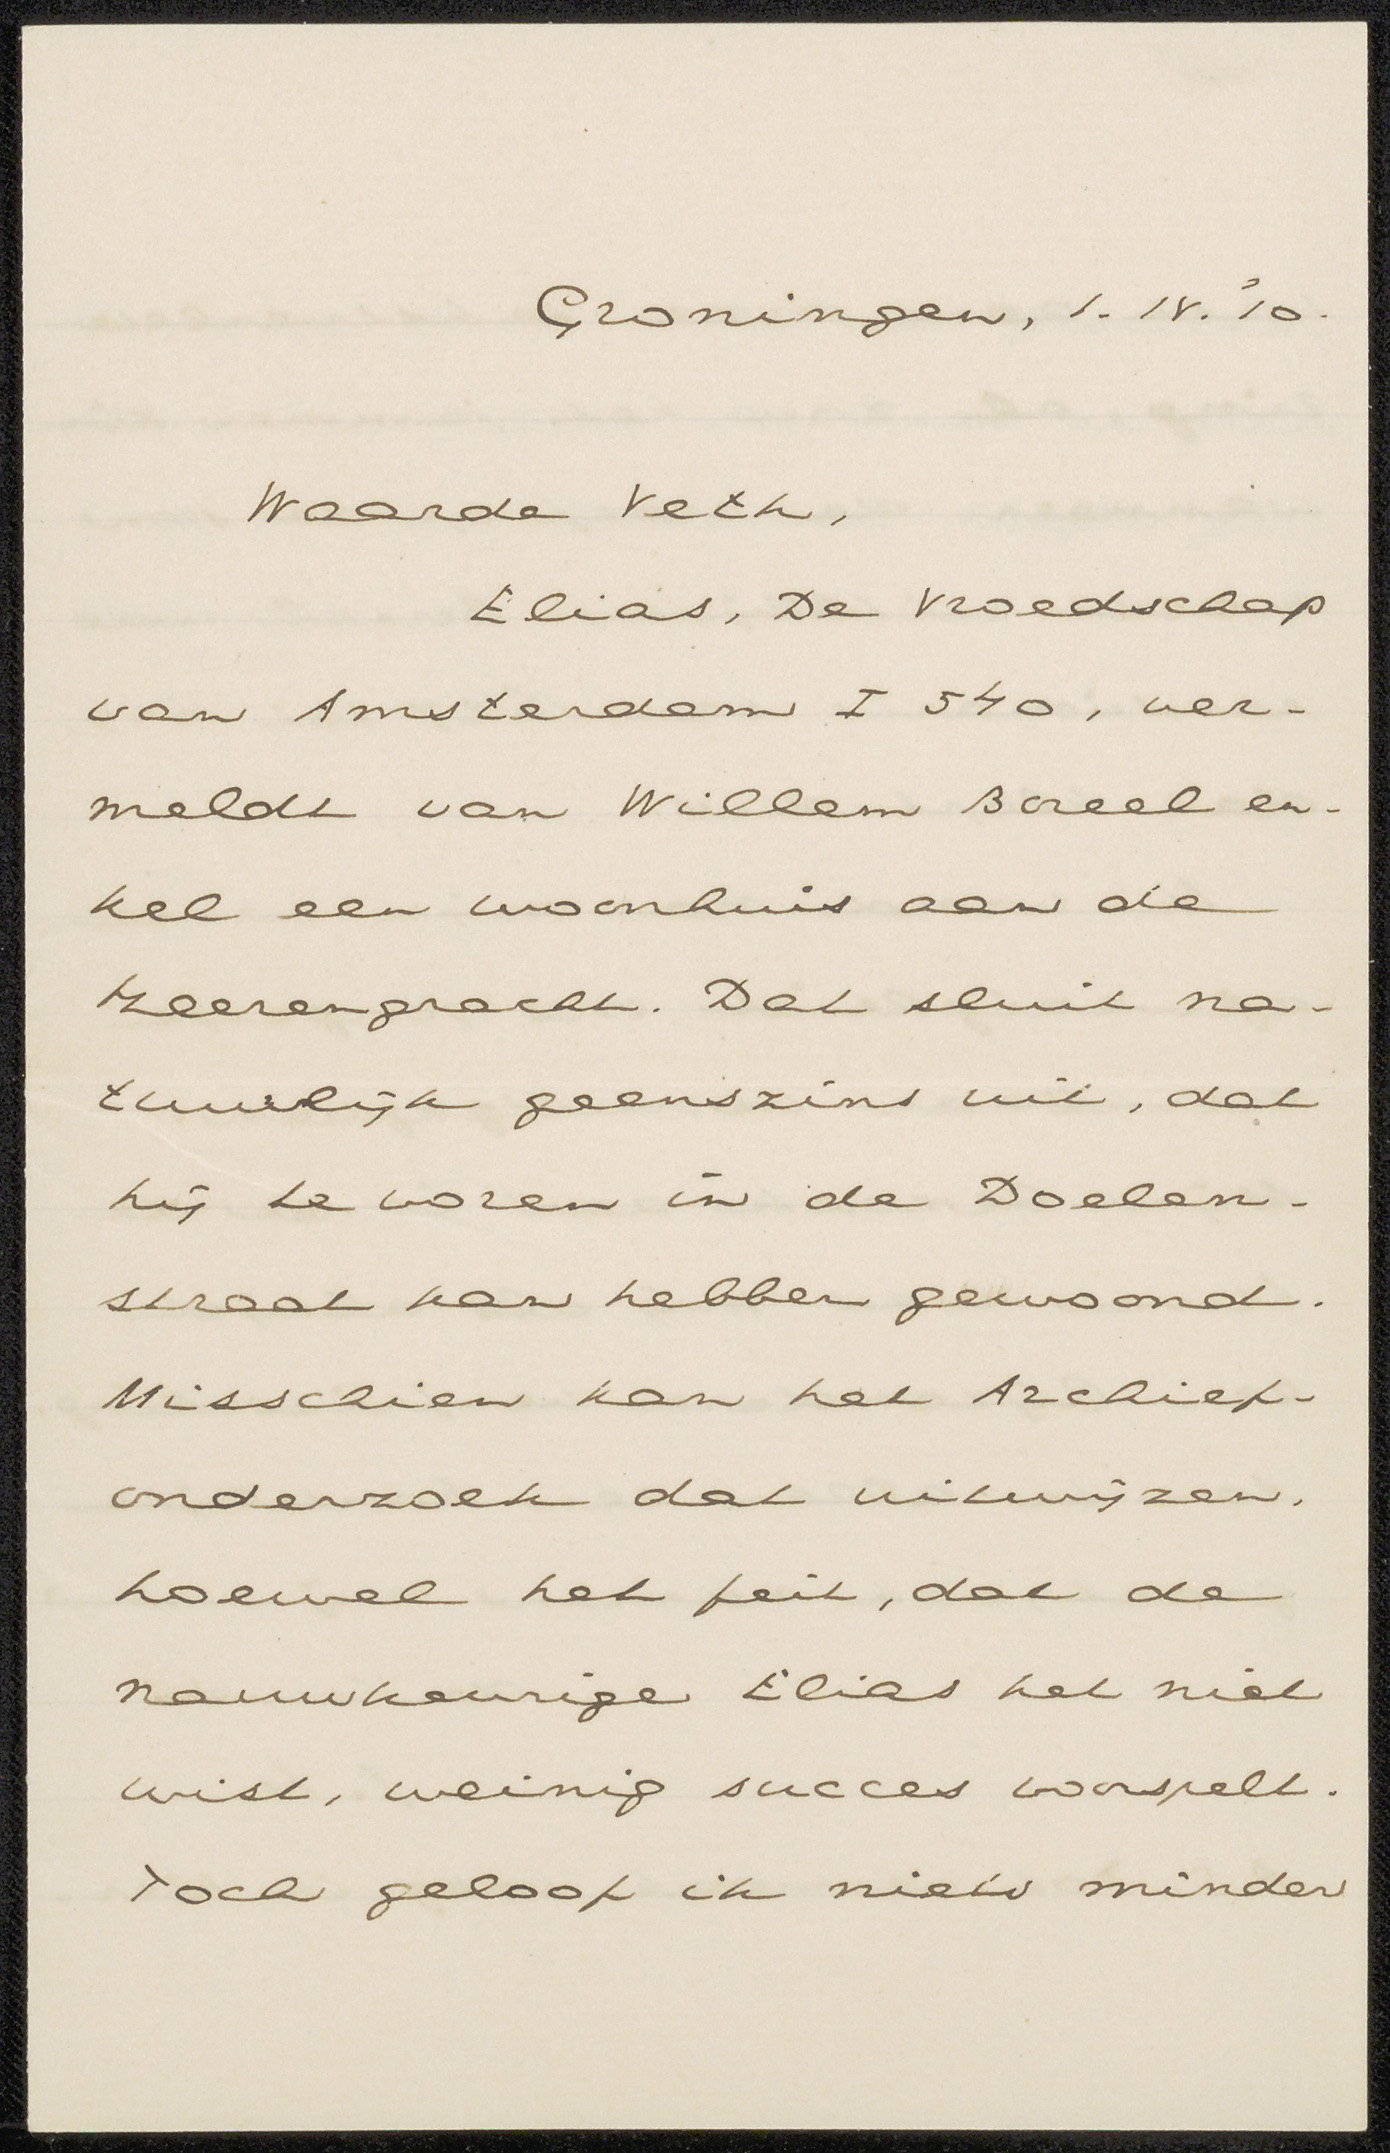 Groningen, 1. IV. '10.
Waarde Veth,
Elias, De Vroedschap
van Amsterdam I 540, ver-
meldt van Willem Boreel en-
kel een woonhuis aan de
Heerengracht. Dat sluit na-
tuurlijk geenszins uit, dat
hij te voren in de Doelen-
straat kan hebben gewoond.
Misschien kan het Archief-
onderzoek dat uitwijzen,
hoewel het feit, dat de
nauwkeurige Elias het niet
wist, weinig succes voorspelt.
Toch geloof ik niets minder